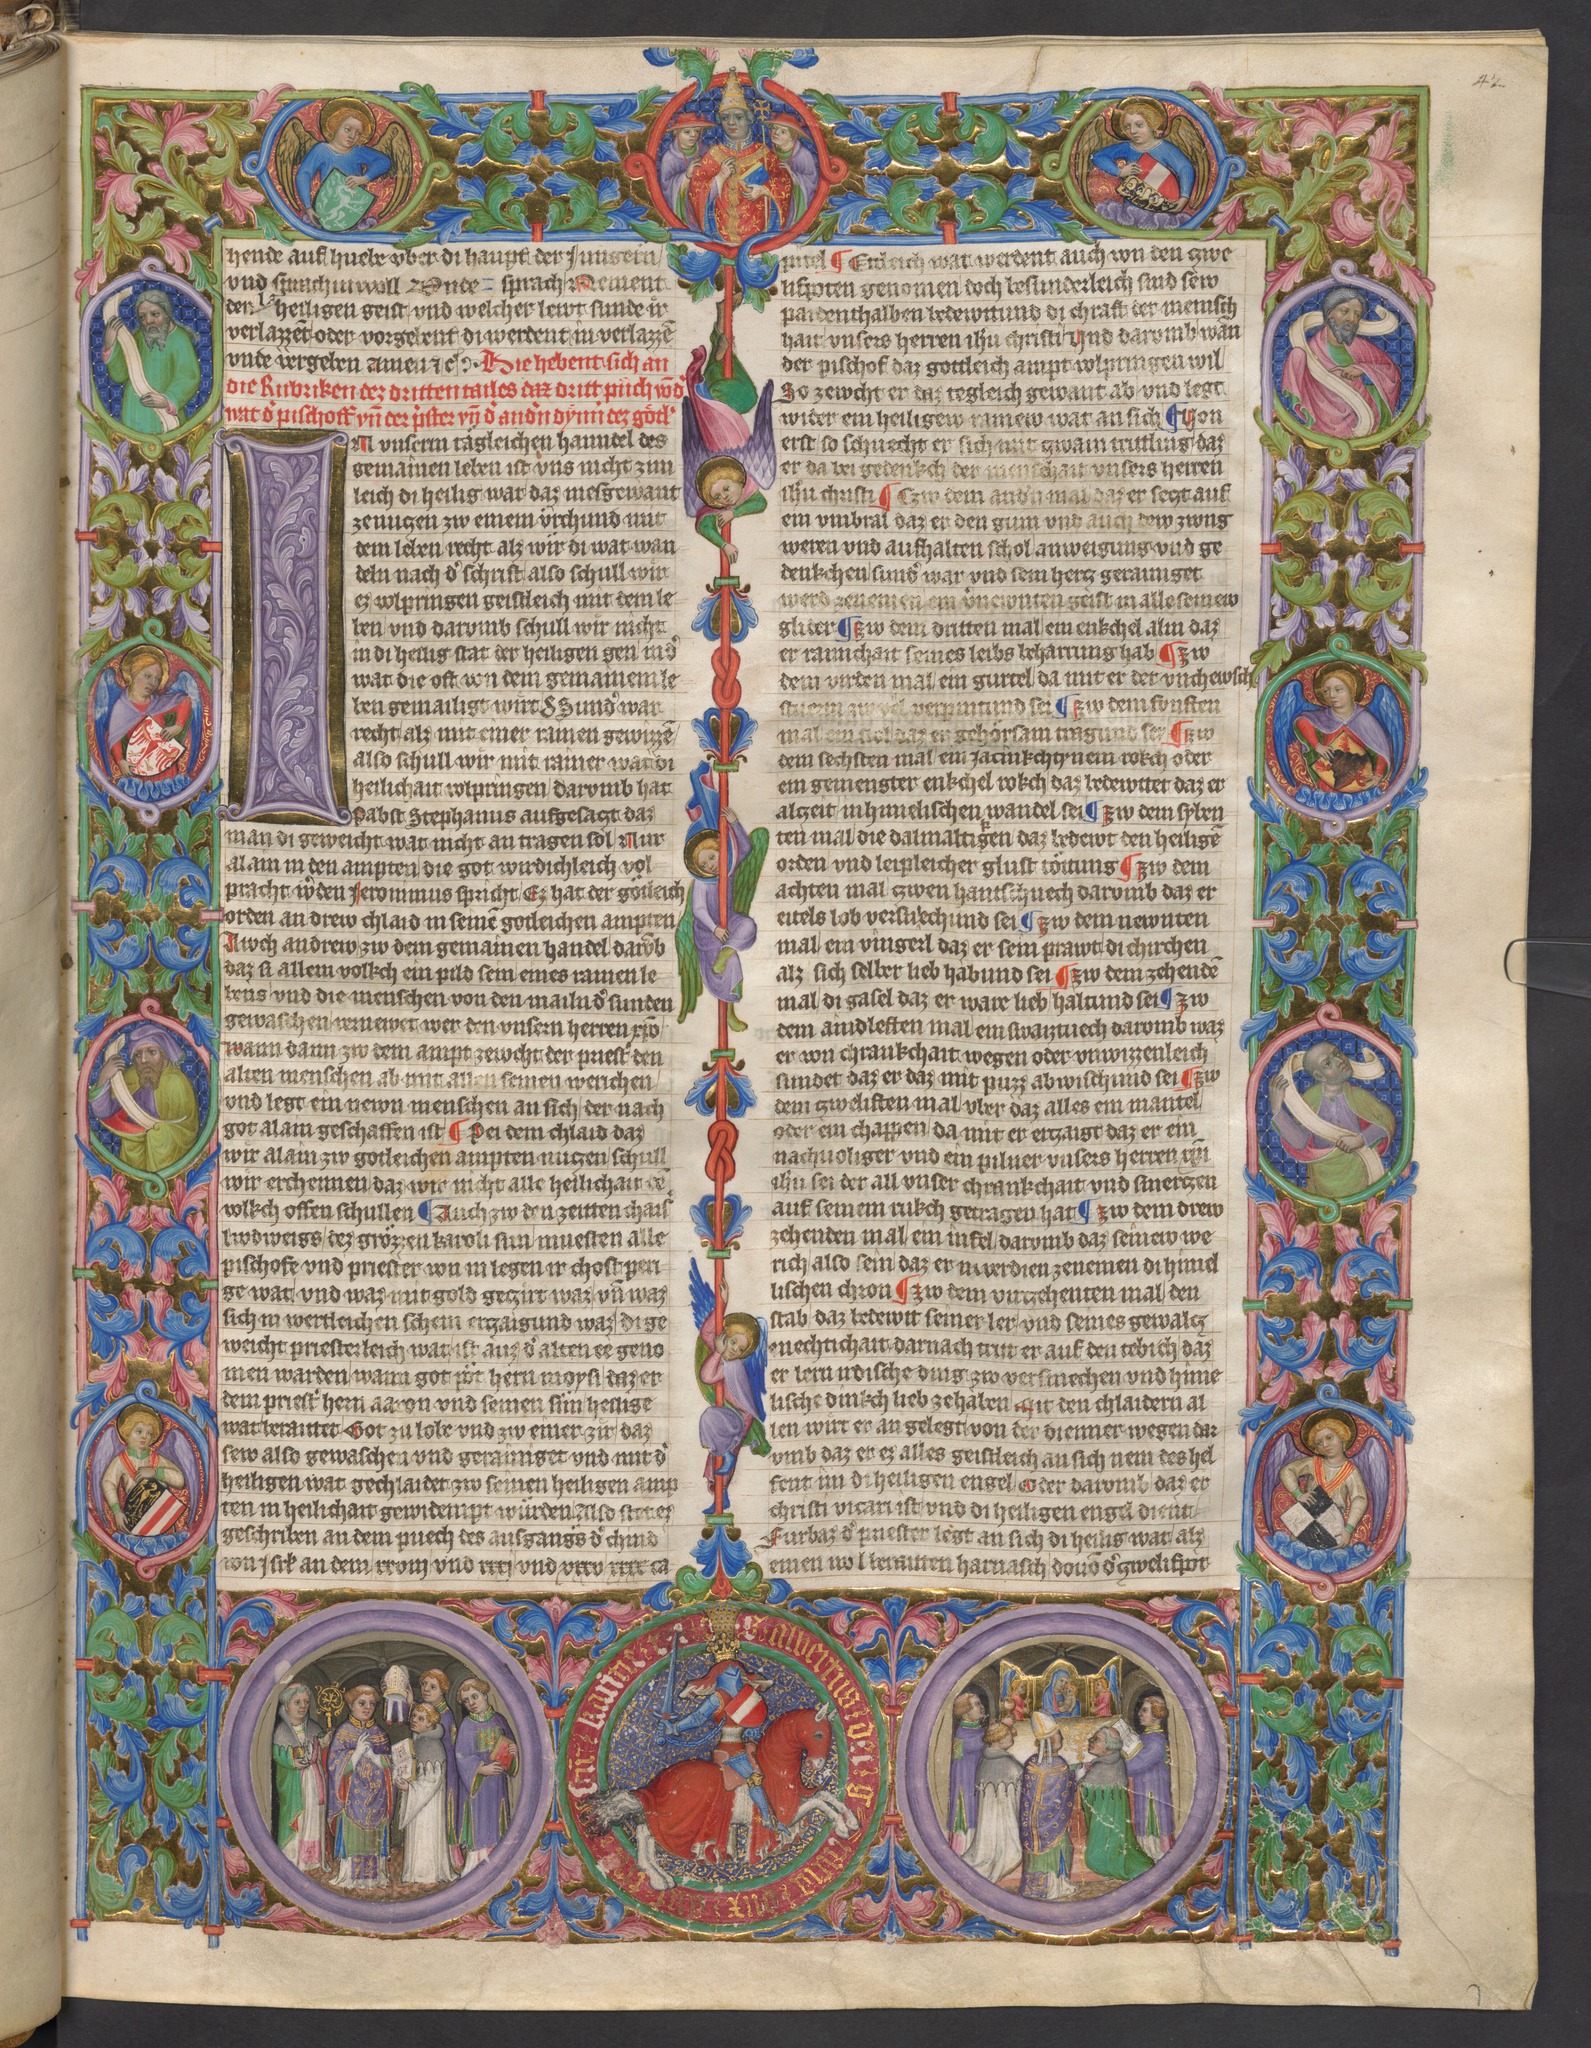 42
hende auf huebe vber di haupt der Jungern
und sprach in woll Ende sprach Nement
den heiligen geist und welcher lewt sunde ir
verlazzet oder vorgebent di werdent in verlazzē
vnde vergeben Amen
Hie hebent sich an
die Rubriken dez dritten tailes daz dritt puch
wat d' pischoff vn̄ der p̄ster vn̄ d' and'n dyn̄ dez gotl
In vnserm tagleichen hanndel des
gemainen leben ist vns nicht zim
leich di heilig wat daz mesgewant
ze nuczen zw einem vrchund mit
dem leben recht alz wir di wat wan
deln nach d' schrift also schull wir
ez wlpringen geistleich mit dem le
ben vnd darvmb schull wir nicht
in di heilig stat der heiligen gen in d'
wat die oft von dem gemainem le
ben gemailigt wirt Sund' war
recht alz mit einer rainen gewizzē
also schull wir mit rainer wat di
heilichait wlpringen darvmb hat
Pabst Stephanus aufgesaczt daz
man di geweicht wat nicht an tragen sol Nur
alain in den ampten die got wirdichleich vol
pracht werden Jeronimus spricht Ez hat der gotleich
orden an drew chlaid in seinē gotleichen ampten
Awch andrew zw dem gemainen handel darvmb
daz si allem volkch ein pild sein eines rainen le
bens vnd die menschen von den mailn d' sunden
gewaschen vernewet werden vnsern herren
wann dann zw dem ampt zewcht der priest' den
alten menschen ab mit allen seinen werichen
vnd legt ein newn menschen an sich der nach
got alain geschaffen ist ¶ Pei dem chlaid daz
wir alain zw gotleichen ampten nuczen schull
wir erchennen daz wir nicht alle heilichait dē
wolkch offen schullen ¶ Auch zw den zeitten chais'
ludweigs dez grozzen karoli sun muesten alle
pischofe vnd priester von in legen ir chostperi
ge wat vnd waz mit gold geczirt waz vn̄ waz
sich in wertleichen schein erczaigund waz di ge
weicht priesterleich wat ist auz d' alten ee geno
men warden wann got pot hern moysi daz er
dem priest' hern aaron vnd seinen sun heilige
wat beraittet Got zu lobe vnd zw einer zir daz
sew also gewaschen vnd gerainiget vnd mit d'
heiligen wat gechlaidet zw seinen heiligen amp
ten in heilichait gewidempt wurden also stet ez
geschriben an dem puech des ausgangs d' chind
von Jsrl an dem xxviij vnd xxxj vnd xxxv xxxx ca
pitel ¶ Etleich wat werdent auch von den zwe
lifpoten genomen doch besunderleich sind sew
paidenthalben bedewttund di chraft der mensch
hait vnsers herren ihū christi Vnd darvmb wan
der pischof daz gottleich ampt wlpringen wil
So zewcht er daz tegleich gewant ab vnd legt
wider ein heiligew rainew wat an sich ¶ Von
erst so schuecht er sich mit zwain trutling daz
er da bei gedenkch der menschait vnsers herren
ihū christi ¶ Czw dem and'n mal daz er seczt auf
ein vmbral daz er den gum vnd auch dew zwng
weren vnd aufhalten schol anweigung vnd ge
denkchen sund' war vnd sein hercz gerainiget
werd ze nemen ein vnewnten geist in alle seinew
glider ¶ Zw dem dritten mal ein enkchel albn daz
er rainchait seines leibs beharrung hab ¶ Zw
dem virden mal ein gurtel da mit er der vnchewsch
sturm zw vol verpintund sei ¶ Zw dem fvnften
mal ein stol daz er gehorsam tragund sei ¶ Zw
dem sechsten mal ein Jacinkchtynein rokch oder
ein gemengter enkchel rokch daz bedewttet daz er
alczeit in himelischen wandel sei ¶ Zw dem syben
ten mal die dalmaltigken daz bedewt den heiligē
orden vnd leipleicher glust tottung ¶ Zw dem
achten mal zwen hantschuech darvmb daz er
eitels lob versmechund sei ¶ Zw dem newnten
mal ein vingerl daz er sein prawt di chirchen
alz sich selber lieb habund sei ¶ Zw dem zehendē
mal di gasel daz er ware lieb haltund sei ¶ Zw
dem aindleften mal ein swaiztuech darvmb waz
er von chrankchait wegen oder vnwizzenleich
sundet daz er daz mit puzz abwischund sei ¶ Zw
dem zwelisten mal vber daz alles ein mantel
oder ein chappen da mit er erczaigt daz er ein
nachvoliger vnd ein pilner vnsers herren
ihū sei der all vnser chrankchait vnd smerczen
auf seinem rukch getragen hat ¶ Zw dem drew
zehenden mal ein infel darvmb daz seinew we
rich also sein daz er mverdien ze nemen di himel
lischen chron ¶ Zw dem virczehenten mal den
stab daz bedewtt seiner ler vnd seines gewalcz
mechtichait darnach trit er auf den tebich daz
er lern irdische ding zw versmechen vnd hime
lische dinkch lieb ze haben Mit den chlaidern al
len wirt er an gelegt von der dienner wegen dar
vmb daz er ez alles geistleich an sich nem des hel
fent im di heiligen engel Oder darvmb daz er
christi vicari ist vnd di heiligen engel dient
Furbaz d' priester legt an sich di heilig wat alz
einen wol beraitten harnasch